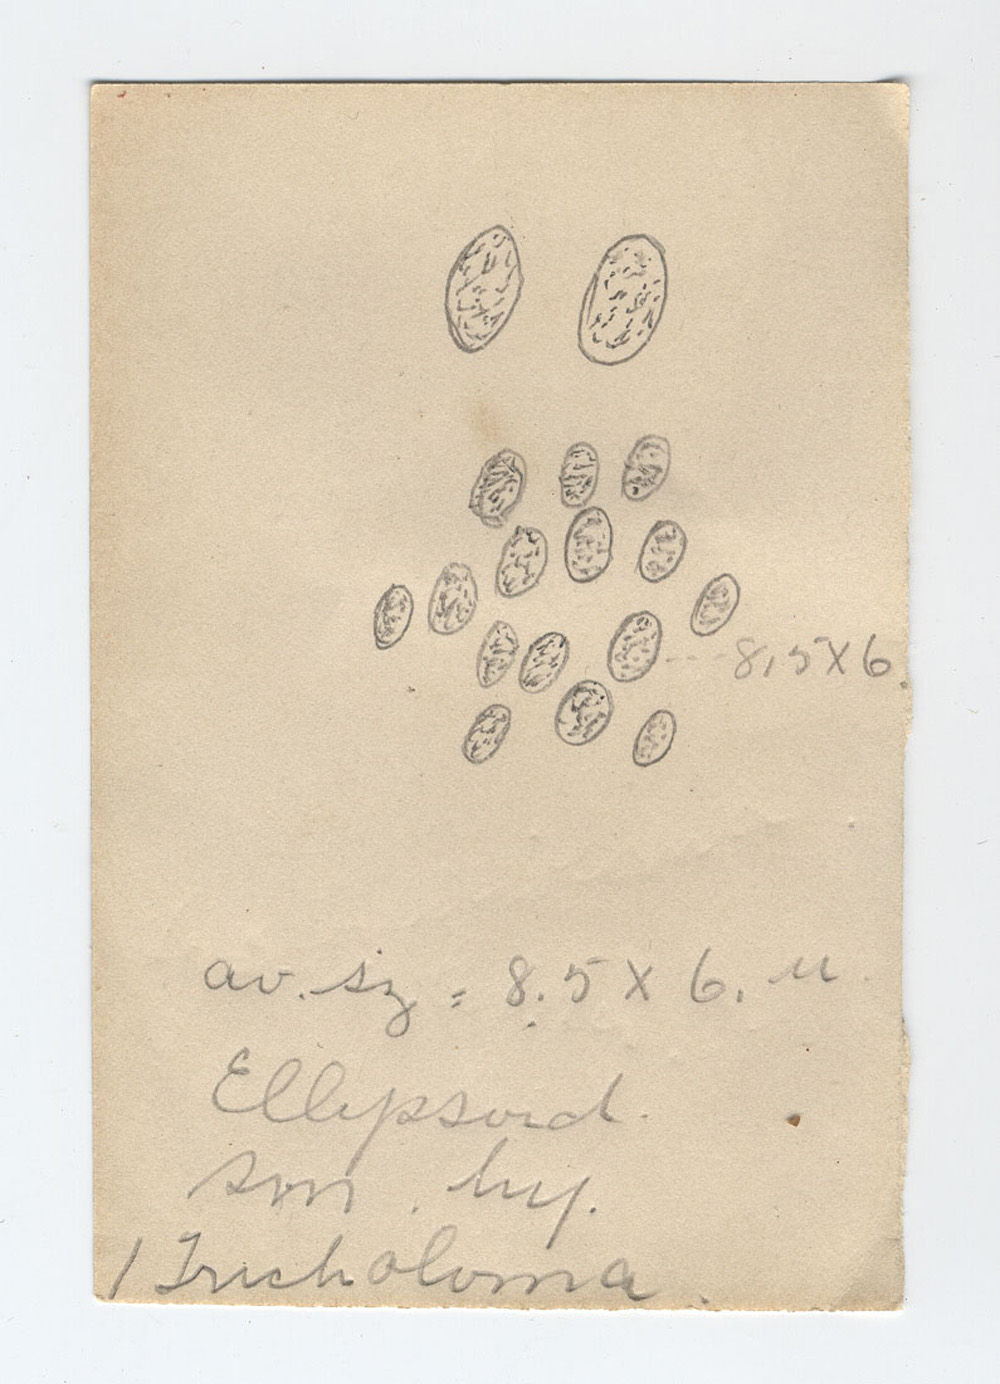 8.5 X 6.
av. sz = 8.5 X 6. u
Ellipsoid.
sm. hy.
1 Tricholoma.